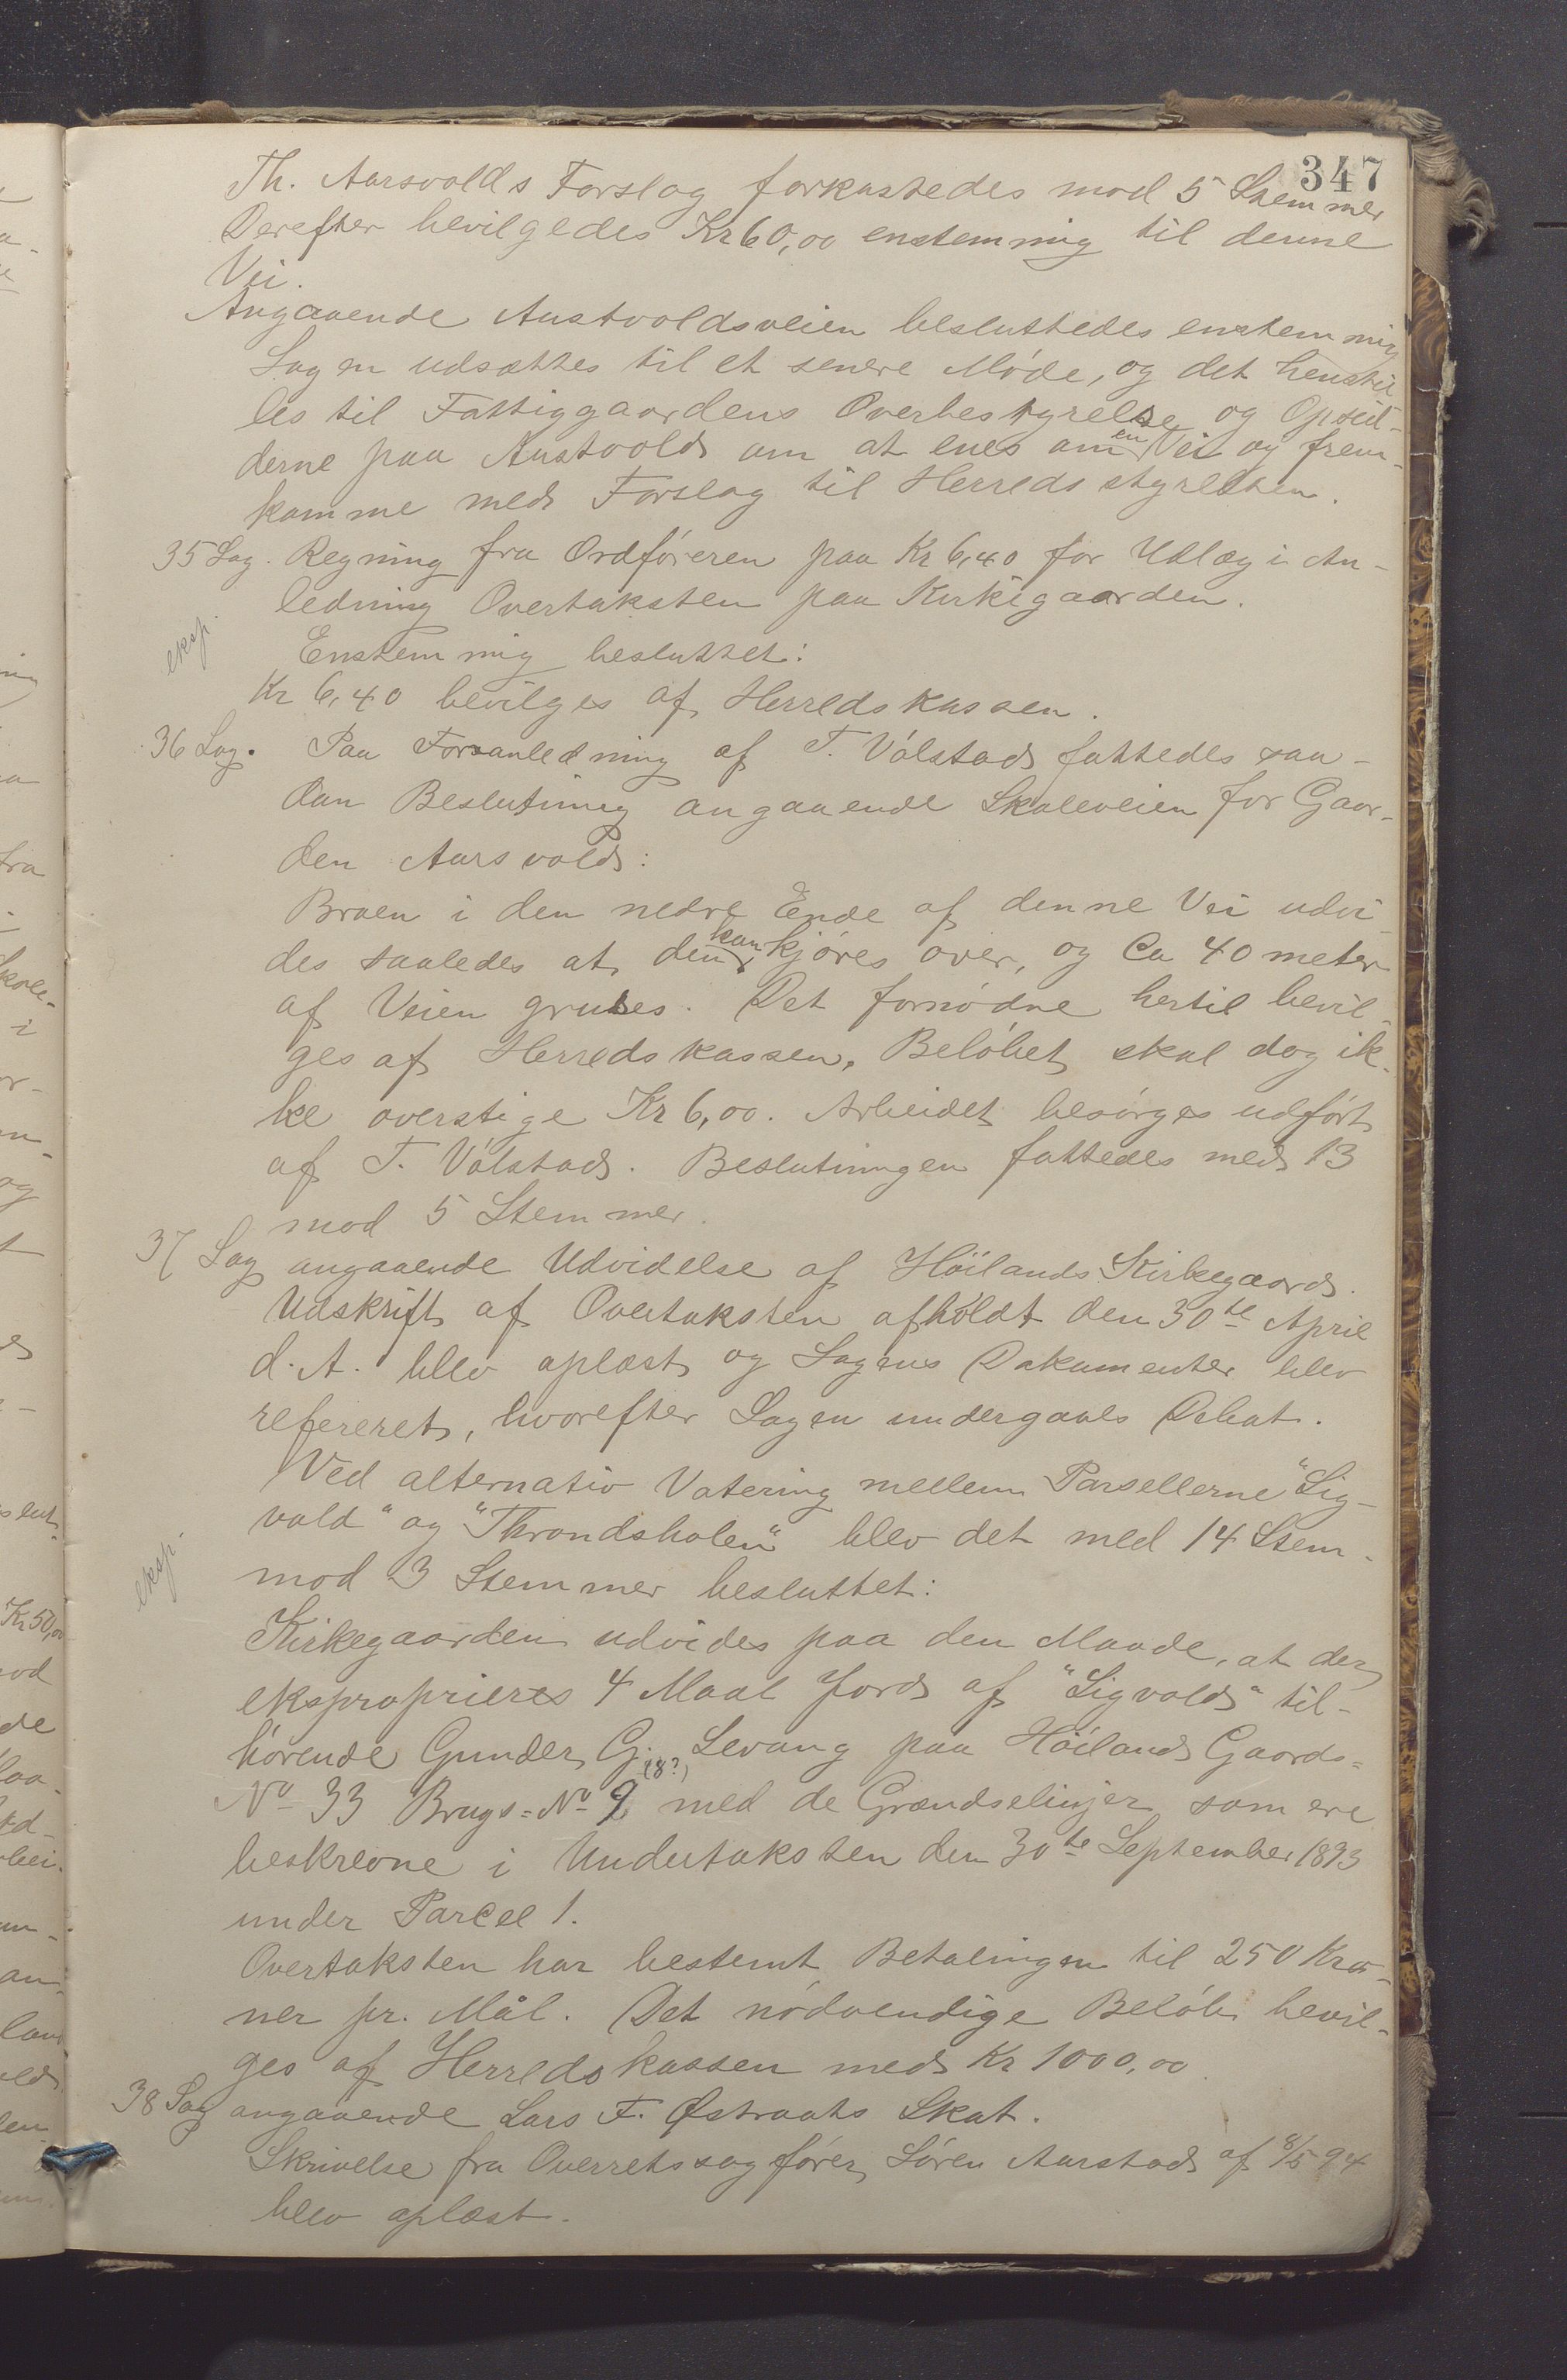 347
Th. Aarsvolds Forslag forkastedes mod 5 Stemmer
Derefter bevilgedes Kr 60,00 enstemmig til denne
Vei.
Angaaende Austvoldsveien besluttedes enstemmig
Sagen udsættes til et senere Møde, og det henstil
les til Fattiggaardens Overbestyrelse og Opsid-
derne paa Austvold om at enes om en Vei og frem-
komme med Forslag til Herredsstyrelsen.
35 Sag. Regning fra Ordføreren paa Kr 6,40 for Udlæg i An-
ledning Overtaksten paa Kirkegaarden.
eksp.
Enstemmig besluttet:
Kr 6,40 bevilges af Herredskassen.
36 Sag. Paa Foranledning af T. Vølstad fattedes saa-
dan Beslutning angaaende Skoleveien for Gaar-
den Aarsvold:
Broen i den nedre Ende af denne Vei udvi
des saaledes at den kan kjøres over, og Ca 40 meter
af Veien gruses. Det fornødne hertil bevil-
ges af Herredskassen, Beløbet skal dog ik-
ke overstige Kr 6,00. Arbeidet besørges udført
af T. Vølstad. Beslutningen fattedes med 13
mod 5 Stemmer.
37 Sag angaaende Udvidelse af Høilands Kirkegaard.
Udskrift af Overtaksten afholdt den 30te April
d. A. blev oplæst og Sagens Dokumenter blev
refereret, hvorefter Sagen undergaves Debat.
Ved alternativ Votering mellem Parsellerne "Sig-
vald" og "Throndsholen" blev det med 14 Stem-
eksp.
mod 3 Stemmer besluttet:
Kirkegaarden udvides paa den Maade, at der
eksproprieres 4 Maal Jord af "Sigvald" til-
hørende Gunder G. Levang paa Høiland Gaards=
No 33 Brugs=No 9 (8?) med de Grændselinjer som ere
beskrevne i Undertaksten den 30te September 1893
under Parcel 1.
Overtaksten har bestemt Betalingen til 250 Kro-
ner pr. Mål. Det nødvendige Beløb bevil-
ges af Herredskassen med Kr 1000,00
38 Sag angaaende Lars F. Østraats Skat.
Skrivelse fra Overretssagfører Søren Aarstad af 8/5 94
blev oplæst.